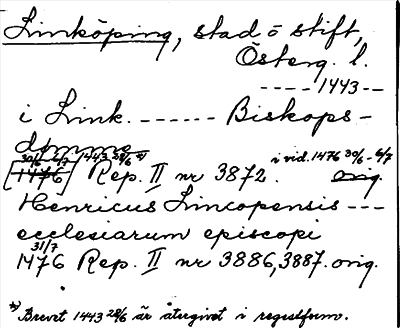 Linköping, stad o stift,
Österg. l.
----1443--
i Link. ------ Biskops-
dömme
30/6 6/7 1443 28/6 *) i vid. 1476 30/6-6/7
[1476] Rep. II nr 3872. orig.
Henricus Lincopensis ---
ecclesiarum episcopi
31/7
1476 Rep. II nr 3886, 3887. orig.
*) Brevet 1443 28/6 är återgivet i regestform.